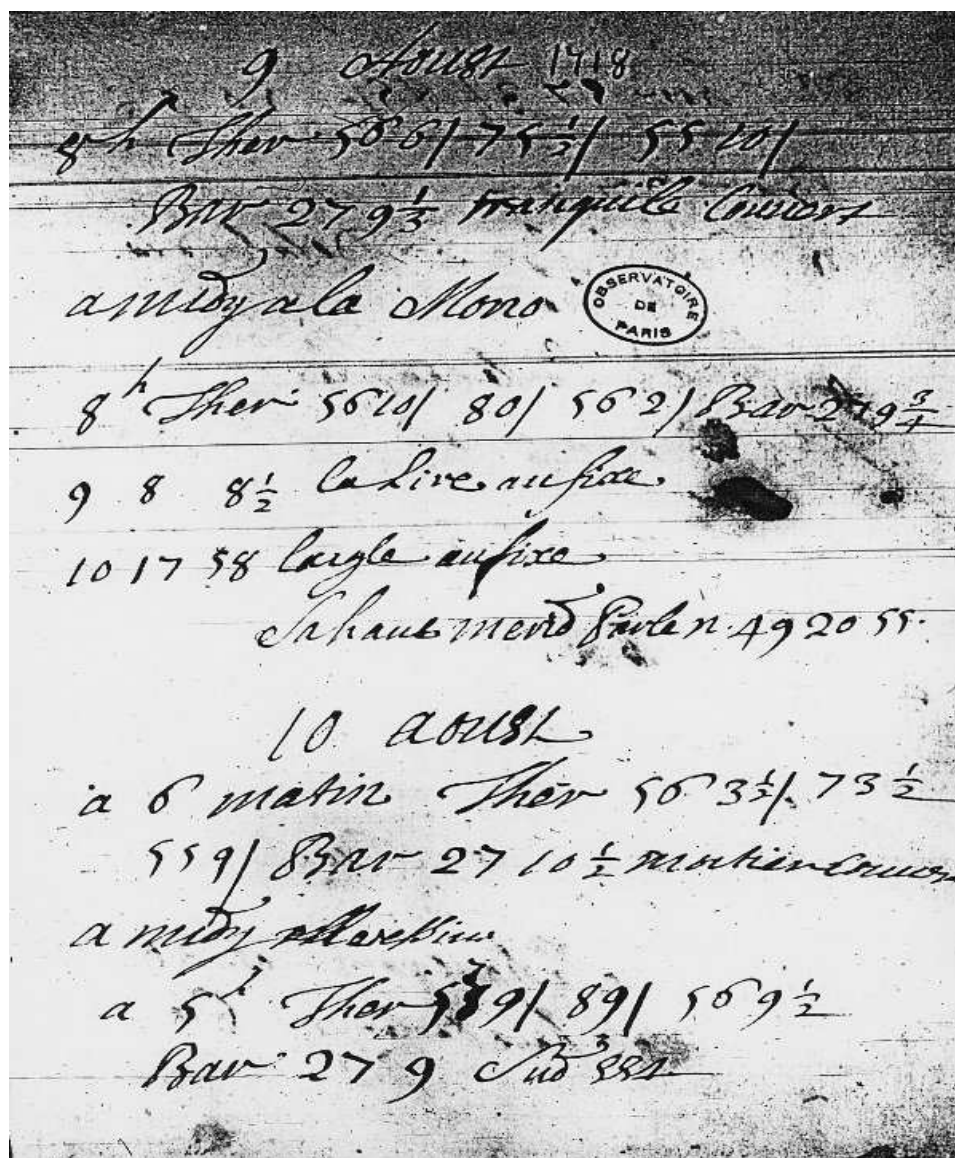 9 Aoust 1718
8 h Ther 56 6/ 75 ½/ 55 10/
Bar 27 9 ⅓ tranquile Couvert
a midy a la
OBSERVATOIRE DE PARIS
8 h Ther 56 10/ 80/ 56 2/ Bar 27 9 ¾
9 8 8 ½ la Lire au fixe
10 17 58 laigle au fixe
Sa haut merid par le n. 49 20 55.
10 aoust
a 6 matin Ther 56 3 ½/. 73 ½
55 9/ Bar 27 10 ½
a midy
a 5 h Ther 9/ 89/ 56 9 ½
Bar 27 9 Sud